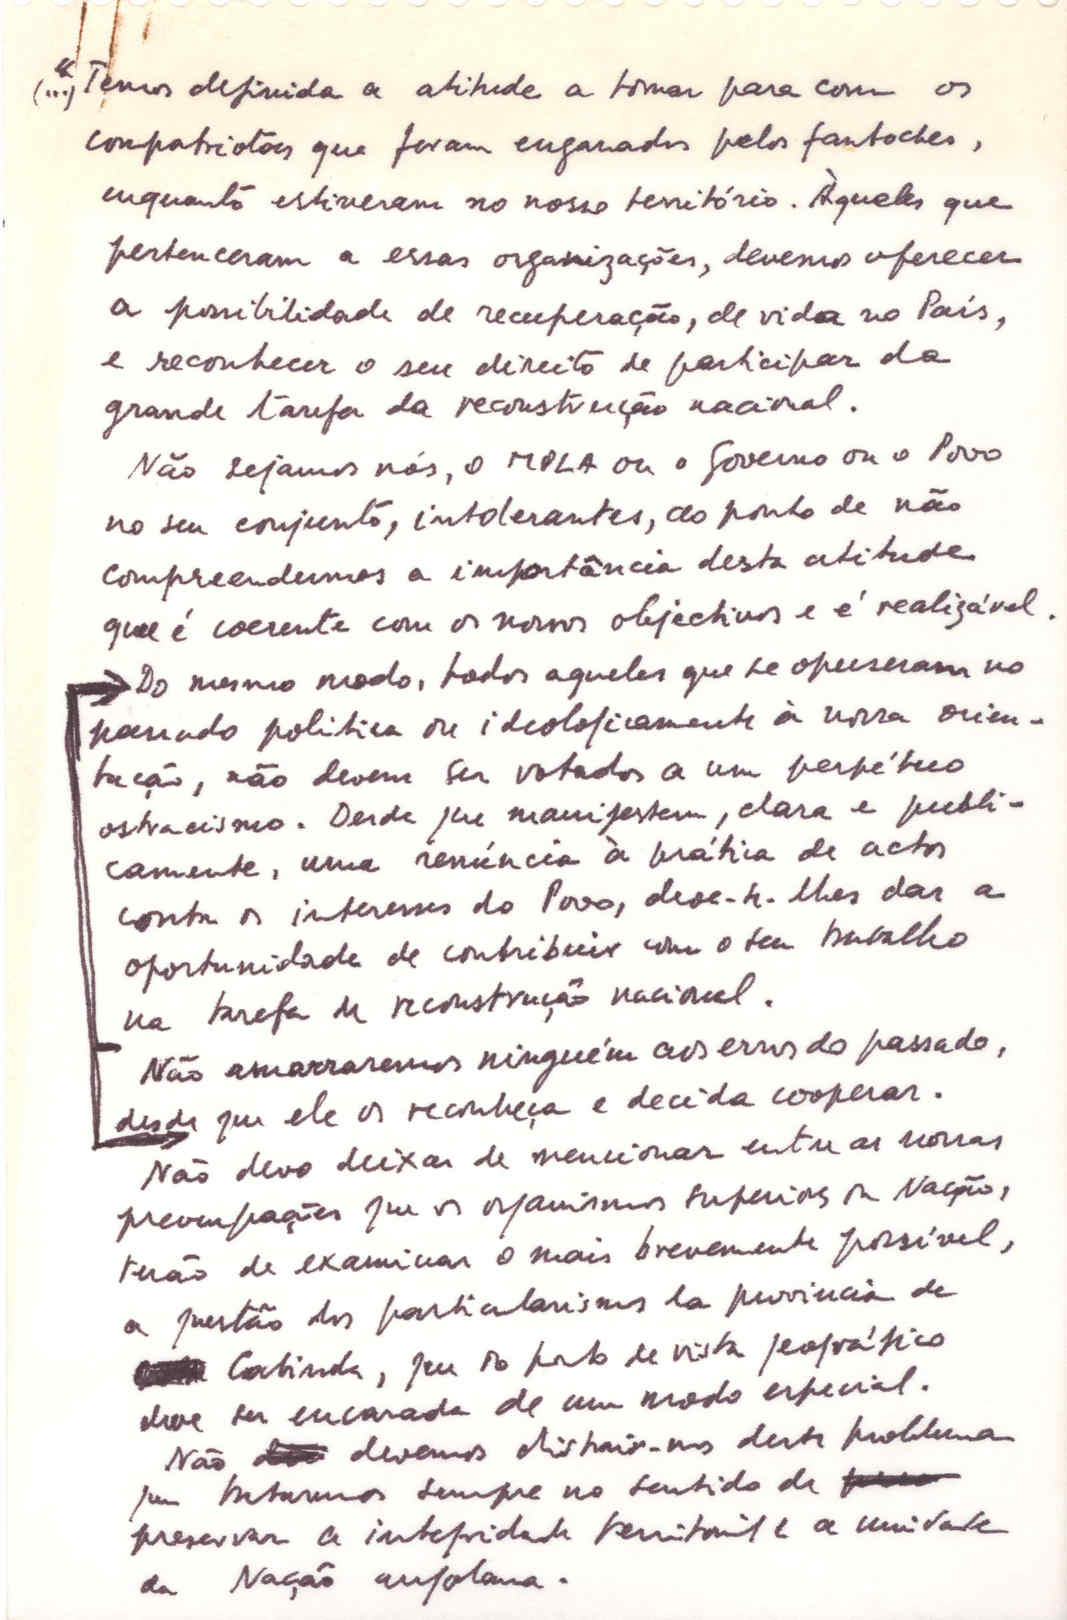 (...) "Temos definida a atitude a tomar para com os
compatriotas que foram enganados pelos fantoches,
enquanto estiveram no nosso território. Àqueles que
pertenceram a essas organizações, devemos oferecer
a possibilidade de recuperação, de vida no País,
e reconhecer o seu direito de participar da
grande tarefa da reconstrução nacional.
Não sejamos nós, o MPLA ou o Governo ou o Povo
no seu conjunto, intolerantes, ao ponto de não
compreendermos a importância desta atitude
que é coerente com os nossos objectivos e é realizável.
Do mesmo modo, todos aqueles que se opuseram no
passado política ou ideologicamente à nossa orien-
tação, não devem ser votados a um perpétuo
ostracismo. Desde que manifestem, clara e publi-
camente, uma renúncia à prática de actos
contra os interesses do Povo, deve-se-lhes dar a
oportunidade de contribuir com o seu trabalho
na tarefa de reconstrução nacional.
Não amarraremos ninguém aos erros do passado,
desde que ele os reconheça e decida cooperar.
Não devo deixar de mencionar entre as nossas
preocupações que os organismos superiores da Nação,
terão de examinar o mais brevemente possível,
a questão dos particularismos da província de
Cabinda, que do ponto de vista geográfico
deve ser encarada de um modo especial.
Não devemos distrair-nos deste problema
que trataremos sempre no sentido de
preservar a integridade territorial e a unidade
da Nação angolana.